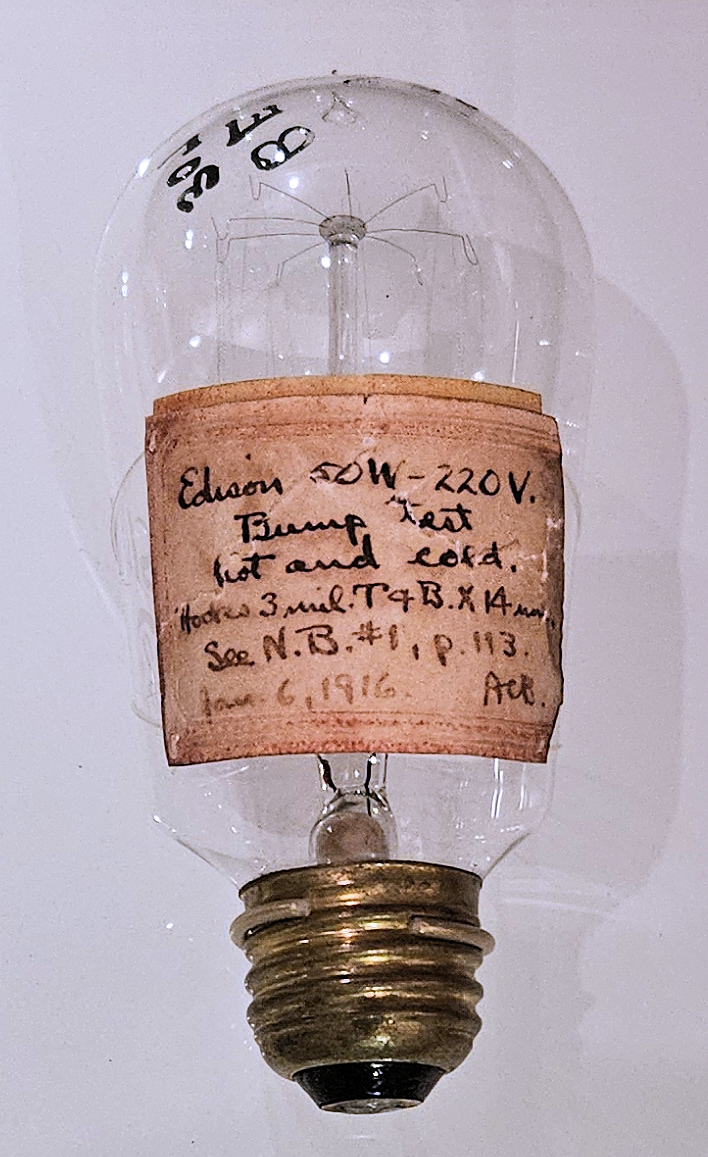 Edison 50W-220V.
Bump Test
hot and cold.
Hooks 3 mil. T & B. X 14
See N.B. #1, p. 113.
Jan. 6, 1916. ACB.